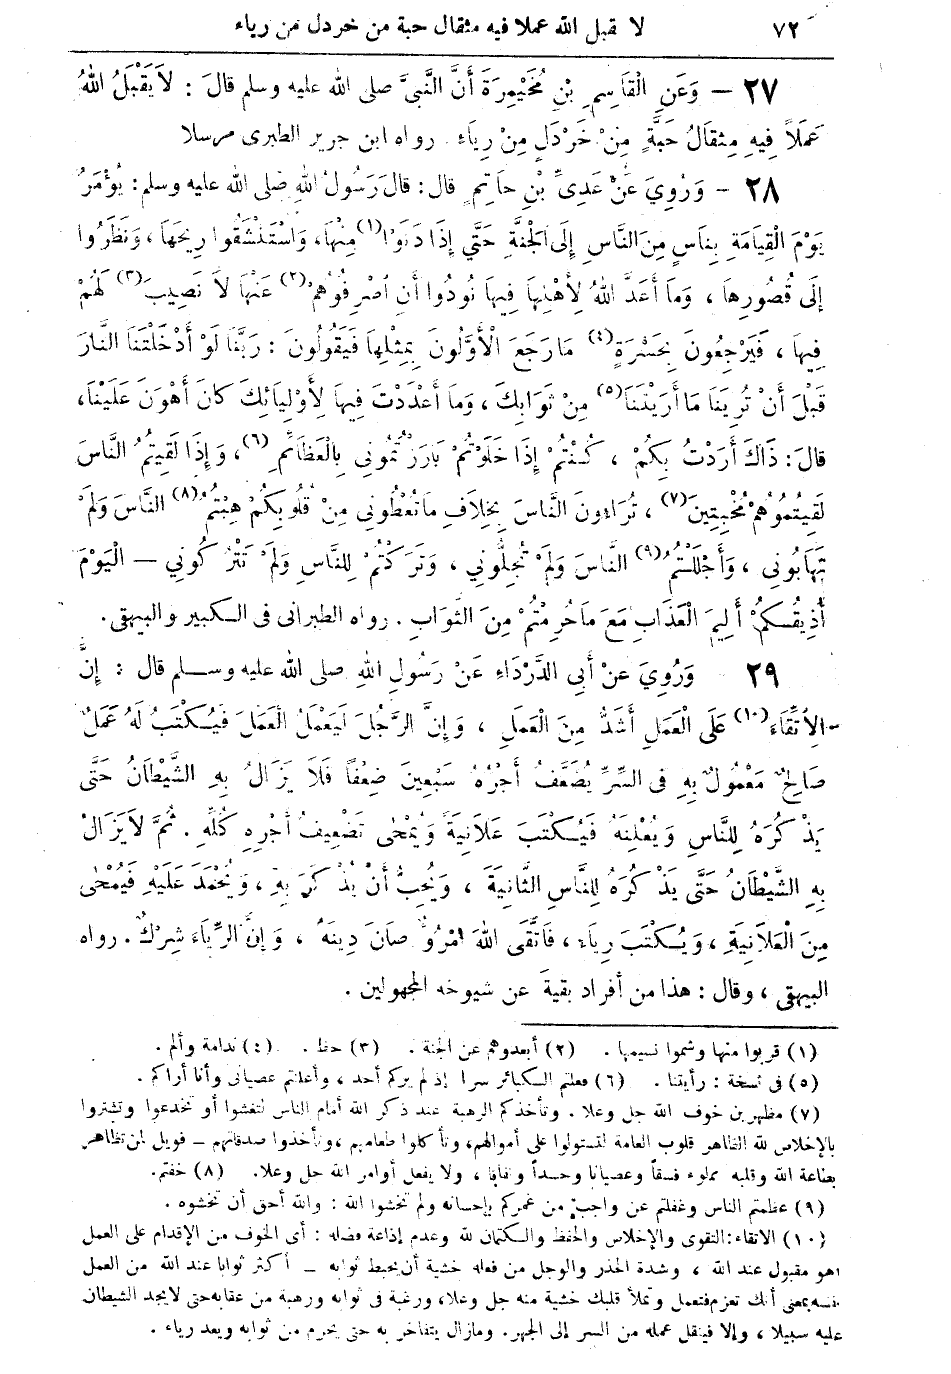 ٧٢ لا يقبل الله عملا فيه مثقال حبة من خردل من رياء
٢٧ – وَعَنِ الْقَاسِمِ بْنِ مُخَيْمِرَةَ أَنَّ النَّبِيَّ صلى الله عليه وسلم قَالَ : لاَ يَقْبَلُ اللهُ
عَمَلاً فِيهِ مِثْقَالُ حَبَّةٍ مِنْ خَرْدَلٍ مِنْ رِيَاءٍ . رواه ابن جرير الطبرى مرسلا
٢٨ – وَرُوِيَ عَنْ عَدِيِّ بْنِ حَاتِمٍ قال : قالَ رَسُولُ اللهِ صلى الله عليه وسلم : يُؤْمَرُ
يَوْمَ الْقِيَامَةِ بِنَاسٍ مِنَ النَّاسِ إِلَى الْجَنَّةِ حَتَّى إِذَا دَنَوْا (١) مِنْهَا، وَاسْتَنْشَقُوا رِيحَهَا ، وَنَظَرُوا
إِلَى قُصُورِهَا ، وَمَا أَعَدَّ اللهُ لِأَهْلِهَا فِيهَا نُودُوا أَنِ اصْرِفُوهُمْ (٢) عَنْهَا لاَ نَصِيبَ (٣) لَهُمْ
فِيهَا ، فَيَرْجِعُونَ بِحَسْرَةٍ (٤) مَا رَجَعَ الْأَوَّلُونَ بِمِثْلِهَا فَيَقُولُونَ : رَبَّنَا لَوْ أَدْخَلْتَنَا النَّارَ
قَبْلَ أَنْ تُرِيَنَا مَا أَرَيْتَنَا (٥) مِنْ ثَوَابِكَ ، وَمَا أَعْدَدْتَ فِيهَا لِأَوْلِيَائِكَ كَانَ أَهْوَنَ عَلَيْنَا،
قالَ : ذَاكَ أَرَدْتُ بِكُمْ ، كُنْتُمْ إِذَا خَلَوْتُمْ بَارَزْتُمُونِي بِالْعَظَائِمِ (٦) ، وَإِذَا لَقِيتُمُ النَّاسَ
لَقِيتُمُوهُمْ مُخْبِتِينَ (٧) ، تُرَاءُونَ النَّاسَ بِخِلاَفِ مَا تُعْطُونِي مِنْ قُلُوبِكُمْ هِبْتُمُ (٨) النَّاسَ وَلَمْ
تَهَابُونِي ، وَأَجْلَلْتُمُ (٩) النَّاسَ وَلَمْ تُجِلُّونِي ، وَتَرَكْتُمْ لِلنَّاسِ وَلَمْ تَتْرُكُونِي – الْيَوْمَ
أُذِيقُكُمْ أَلِيمَ الْعَذَابِ مَعَ مَا حُرِمْتُمْ مِنَ الثَّوَابِ . رواه الطبرانى فى الكبير والبيهقى.
٢٩ وَرُوِيَ عَنْ أَبِي الدَّرْدَاءِ عَنْ رَسُولِ اللهِ صلى الله عليه وسلم قال : إِنَّ
الِاتِّقَاءَ (١٠) عَلَى الْعَمَلِ أَشَدُّ مِنَ الْعَمَلِ ، وَإِنَّ الرَّجُلَ لَيَعْمَلُ الْعَمَلَ فَيُكْتَبُ لَهُ عَمَلٌ
صَالِحٌ مَعْمُولٌ بِهِ فى السِّرِّ يُضَعَّفُ أَجْرُهُ سَبْعِينَ ضِعْفاً فَلاَ يَزَالُ بِهِ الشَّيْطَانُ حَتَّى
يَذْكُرَهُ لِلنَّاسِ وَيُعْلِنَهُ فَيُكْتَبَ عَلاَنِيَةً وَيُمْحَى تَضْعِيفُ أَجْرِهِ كُلِّهِ . ثُمَّ لاَ يَزَالُ
بِهِ الشَّيْطَانُ حَتَّى يَذْكُرَهُ لِلنَّاسِ الثَّانِيَةَ ، وَيُحِبُّ أَنْ يُذْكَرَ بِهِ ، وَيُحْمَدَ عَلَيْهِ فَيُمْحَى
مِنَ الْعَلاَنِيَةِ ، وَيُكْتَبَ رِيَاءً ، فَاتَّقَى اللهَ امْرُؤٌ صَانَ دِينَهُ ، وَإِنَّ الرِّيَاءَ شِرْكٌ . رواه
البيهقى ، وقال : هذا من أفراد بقية عن شيوخه المجهولين .
(١) قربوا منها وشموا نسيمها . (٢) أبعدوهم عن الجنة . (٣) حظ . (٤) ندامة وألم .
(٥) فى نسخة : رأيتنا . (٦) فعلتم الكبائر سرا إذ لم يركم أحد ، وأعلنتم عصيانى وأنا أراكم .
(٧) مظهرين خوف الله جل وعلا . وتأخذكم الرهبة عند ذكر الله أمام الناس لتغشوا أو تخدعوا وتشتروا
بالإخلاص لله الظاهر قلوب العامة لتستولوا على أموالهم، وتأكلوا طعامهم ، وتأخذوا صدقاتهم – فويل لمن تظاهر
بطاعة الله وقلبه مملوء فسقاً وعصيانا وحسداً ونفاقا ، ولا يفعل أوامر الله جل وعلا. (٨) خفتم.
(٩) عظمتم الناس وغفلتم عن واجب من غمركم بإحسانه ولم تخشوا الله : والله أحق أن تخشوه .
(١٠) الاتقاء: التقوى والإخلاص والحفظ والكتمان لله وعدم إذاعة فضله : أى الخوف من الإقدام على العمل
أهو مقبول عند الله ، وشدة الحذر والوجل من فعله خشية أن يحبط ثوابه – أكثر ثوابا عند الله من العمل
نفسه بمعنى أنك تعزم فتعمل وتملأ قلبك خشية منه جل وعلا، ورغبة فى ثوابه ورهبة من عقابه حتى لا يجد الشيطان
عليه سبيلا ، وإلا فينقل عمله من السر إلى الجهر. ومازال يتفاخر به حتى يحرم من ثوابه ويعد رياء .